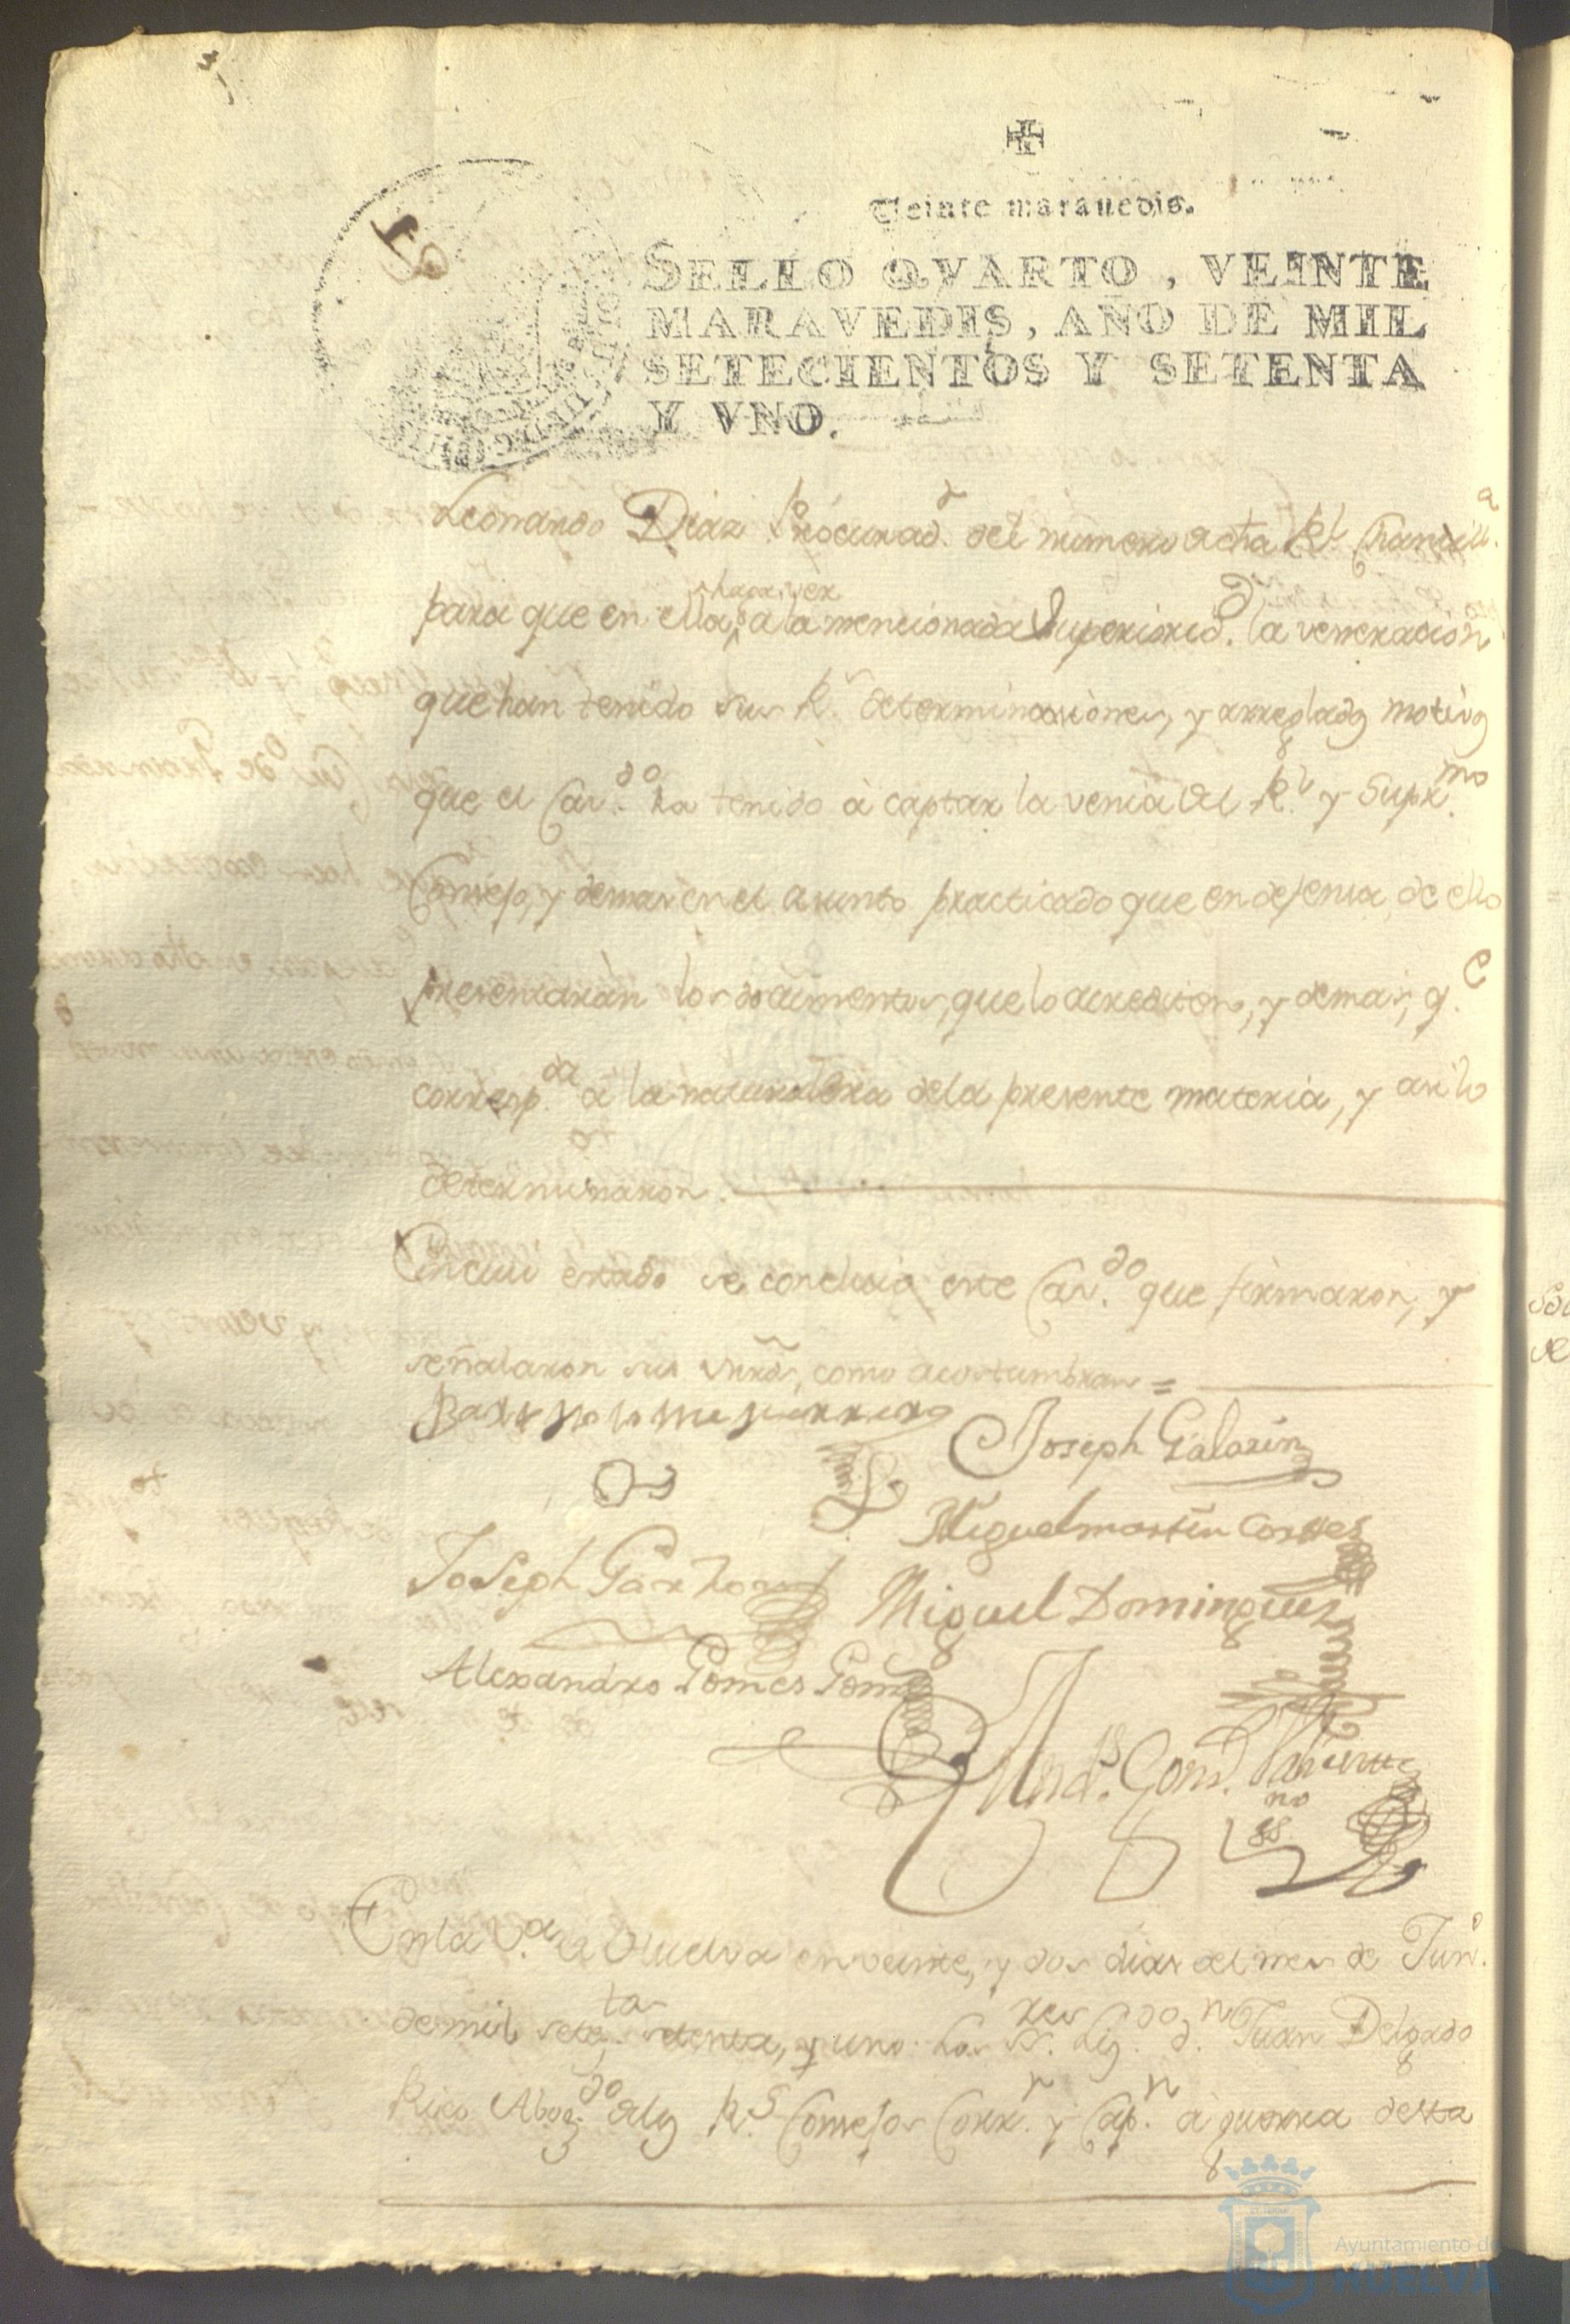 Veinte maravedis.
SELLO QVARTO, VEINTE
MARAVEDIS, AÑO DE MIL
SETECIENTOS Y SETENTA
Y VNO.
Leonardo Diaz Procurad.r del numero de dha Rl Chancill.a
para que en ella haga ver a la mencionada Superiorid.d la veneracion
que han tenido sus R.s determinaziones, y arreglados motivos
que el Cav.do ha tenido à captar la venia del R.l y Supr.mo
Consejo, y demas en el asunto practicado que en defensa de ello
presentaràn los documentos, que lo acrediten, y demas, q.e
corresp.da a la naturaleza dela presente materia, y asi lo
determinaron.
En cuio estado se concluio este Cav.do que firmaron, y
señalaron sus mrds, como acostumbran =
Barttolome
Joseph Galarin
Miguel martin Cortes
Joseph Garzon
Miguel Dominguez
Alexandro Gomes
And.s Gonz.
no
ss.
En la V.a de Huelva en veinte, y dos dias del mes de Jun.o
de mil setez.tos setenta, y uno Los SS.res Liz.do d.n Juan Delgado
Rico Abog.do delos R.s Consejos Corr.r y Cap.n à guerra desta
Ayuntamiento de
HUELVA